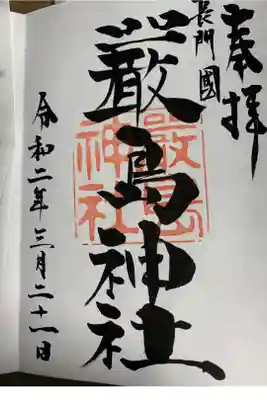 奉拝
長門國
厳島神社
厳島
神社
令和二年三月二十一日